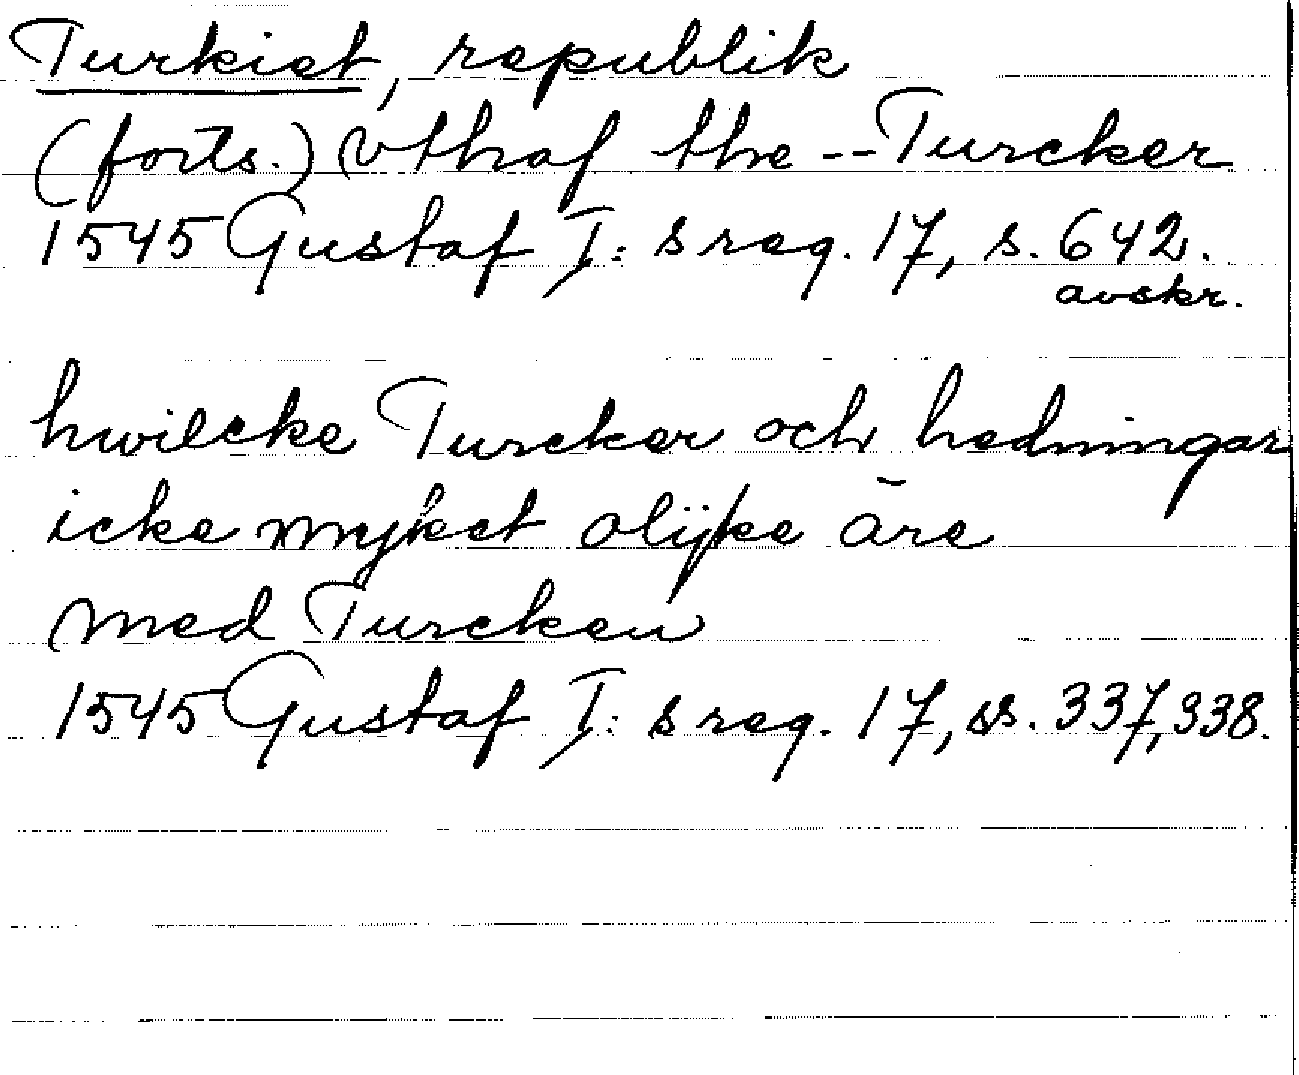 Turkiet, republik
(forts.) vthaf the -- Turcker
1545 Gustaf I:s reg. 17, s. 642.
avskr.
hwilcke Turcker och hedningar
icke myket olijke äre
med Turcken
1545 Gustaf I:s reg. 17, ss. 337, 338.